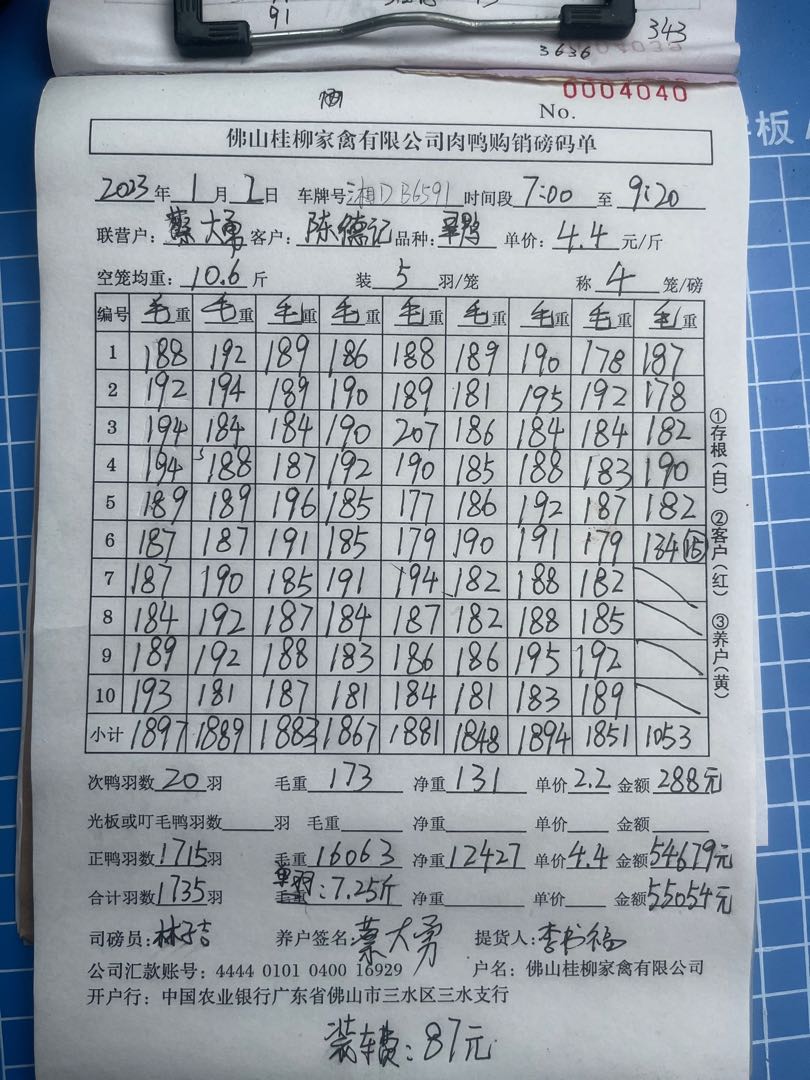 91
343
3636 04039
0004040
No.
佛山桂柳家禽有限公司肉鸭购销磅码单
2023年 1月 2日 车牌号湘DB6591 时间段 7:00 至 9:20
联营户：蔡大勇 客户：陈德记 品种： 单价：4.4 元/斤
空笼均重：10.6 斤 装 5 羽/笼 称 4 笼/磅
编号 毛重 毛重 毛重 毛重 毛重 毛重 毛重 毛重 毛重
1 188 192 189 186 188 189 190 178 187
2 192 194 189 190 189 181 195 192 178
3 194 184 184 190 207 186 184 184 182
4 194 188 187 192 190 185 188 183 190
5 189 189 196 185 177 186 192 187 182
6 187 187 191 185 179 190 191 179 134 15
7 187 190 185 191 194 182 188 182
8 184 192 187 184 187 182 188 185
9 189 192 188 183 186 186 195 192
10 193 181 187 181 184 181 183 189
小计 1897 1889 1883 1867 1881 1848 1894 1851 1053
次鸭羽数 20 羽 毛重 173 净重 131 单价 2.2 金额 288元
光板或叮毛鸭羽数 羽 毛重 净重 单价 金额
正鸭羽数 1715 羽 毛重 16063 净重 12427 单价 4.4 金额 54679元
合计羽数 1735 羽 单羽：7.25斤 净重 单价 金额 55054元
司磅员：林子吉 养户签名：蔡大勇 提货人：李书福
公司汇款账号：4444 0101 0400 16929 户名：佛山桂柳家禽有限公司
开户行：中国农业银行广东省佛山市三水区三水支行
装车费：87元
①存根（白） ②客户（红） ③养户（黄）
板